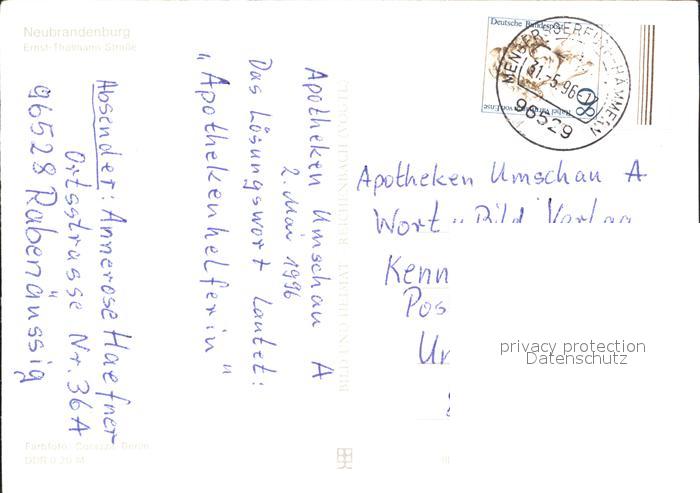 Neubrandenburg
Ernst-Thälmann Straße
Absender: Annerose Haefner
Ortsstrasse Nr. 36A
96528 Rabenäussig
"Apothekenhelferin"
Das Lösungswort Lautet:
2. Mai 1996
Apotheken Umschau A
BILD UND HEIMAT REICHENBACH (VOGTL)
Deutsche Bundespost
80
31.-5.96-17
96529
Apotheken Umschau A
Wort u. Bild Verlag
Kenn
Pos
Un
privacy protection
Datenschutz
Farbfoto: Berlin
DDR 0,20 M